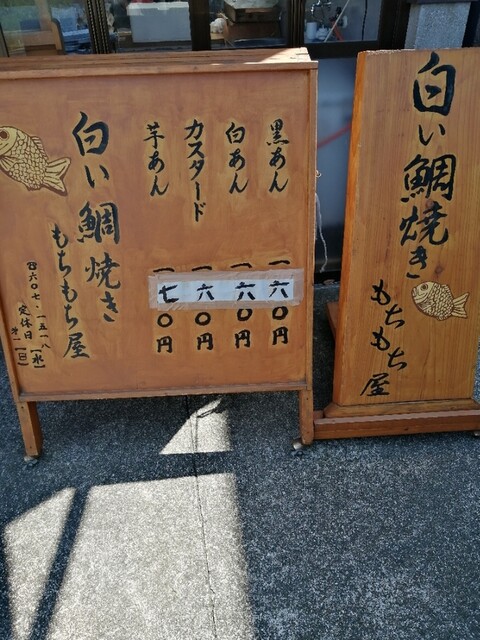 黒あん 一六〇円
白あん 一六〇円
カスタード 一六〇円
芋あん 一七〇円
白い鯛焼き
もちもち屋
六〇七・一五一八
定休日(水)
第一(日)
白い鯛焼き
もちもち屋